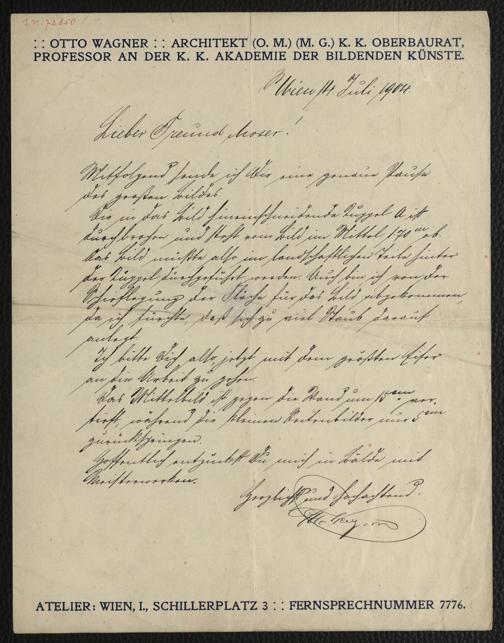 I.N. 78850
: : OTTO WAGNER : : ARCHITEKT (O. M.) (M. G.) K. K. OBERBAURAT,
PROFESSOR AN DER K. K. AKADEMIE DER BILDENDEN KÜNSTE.
Wien 14 Juli 1904
Lieber Freund Moser!
Mitfolgend sende ich Dir eine genaue Pause
des großen Bildes.
Die in das Bild hineinschneidende Kuppel A ist
durchbrochen und steht vom Bild im Mittel 1·70 m ab.
Das Bild müßte also im landschaftlichen Teile hinter
der Kuppel durchgeführt werden. Auch bin ich von der
Schieflegung der Fläche für das Bild abgekommen
da ich fürchte, daß sich zu viel Staub darauf
anlegt.
Ich bitte Dich also jetzt mit dem größten Eifer
an die Arbeit zu gehen.
Das Mittelbild ist gegen die Wand um 15 cm ver-
tieft, während die kleinen Seitenbilder nur 5 cm
zurückspringen.
Hoffentlich entzückst Du mich in Bälde mit
Meisterwerken.
Herzlichst und hochachtend.
ATELIER: WIEN, I., SCHILLERPLATZ 3 : : FERNSPRECHNUMMER 7776.